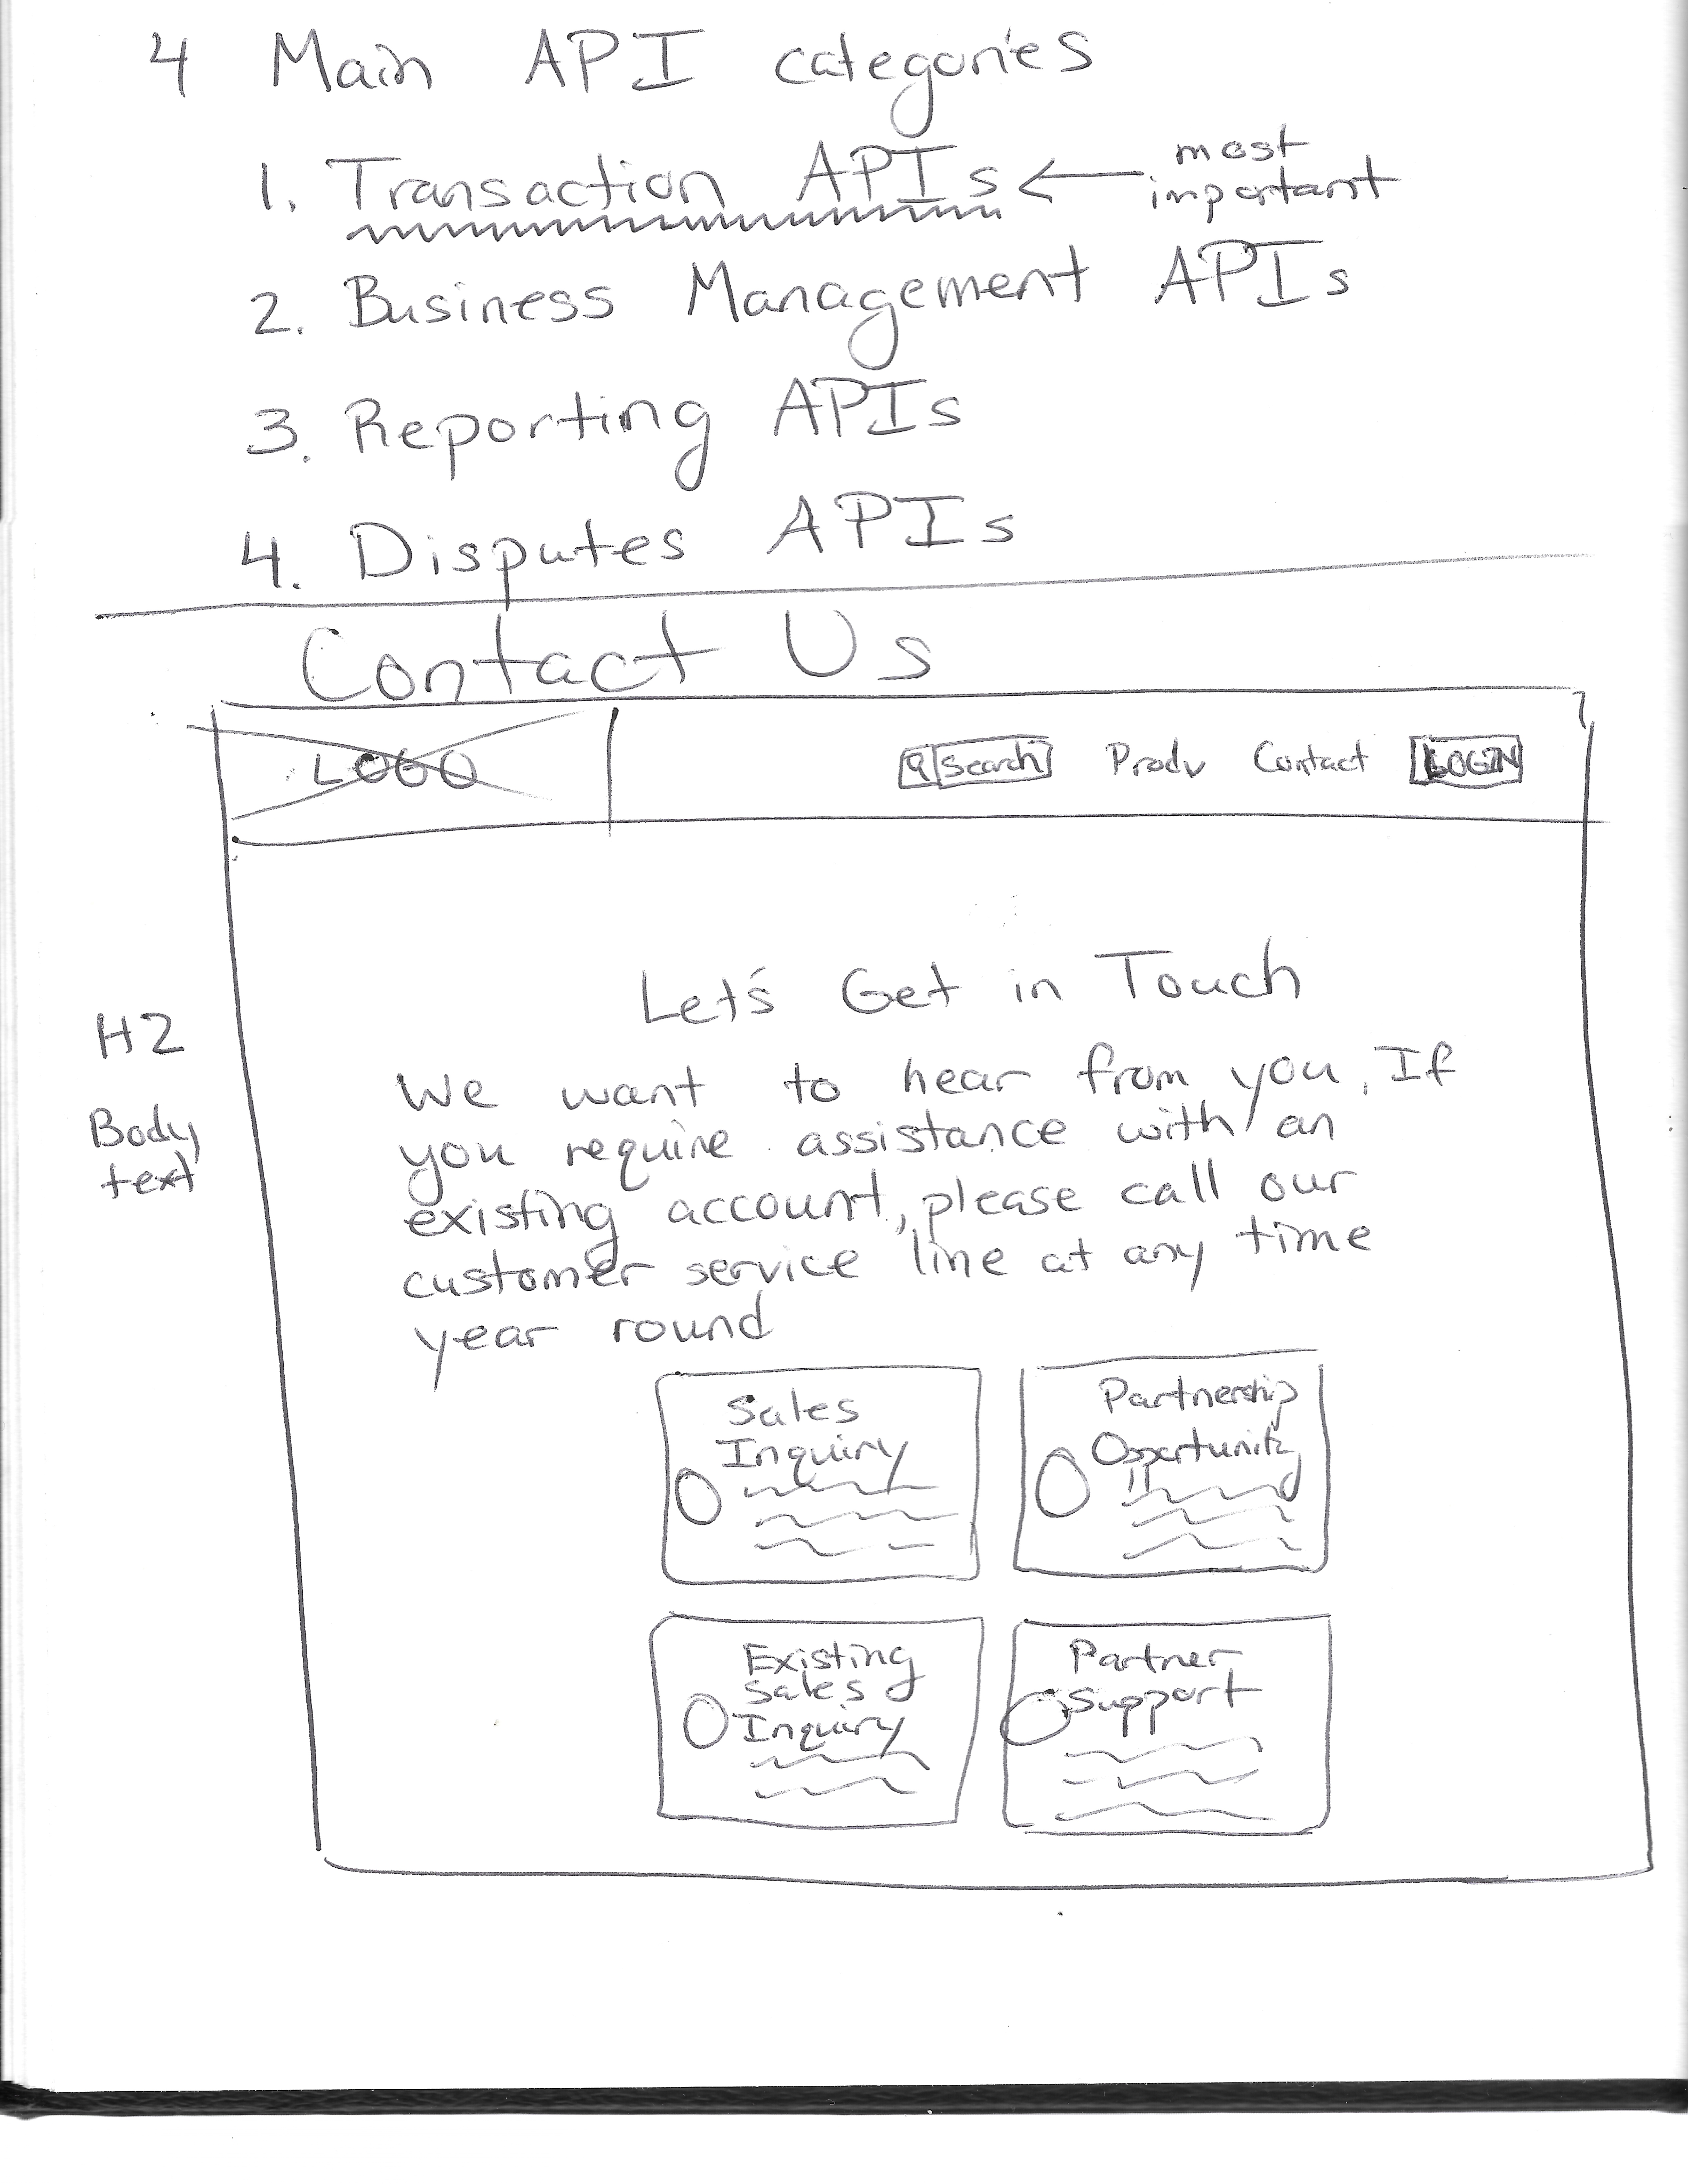 4 Main API categories
1. Transaction APIs ← most important
2. Business Management APIs
3. Reporting APIs
4. Disputes APIs
Contact Us
LOGO
Search Produ Contact LOGIN
Let's Get in Touch
H2
We want to hear from you. If
Body text
you require assistance with an
existing account, please call our
customer service line at any time
year round
Sales
Inquiry
Partnership
Opportunity
Existing
Sales
Inquiry
Partner
Support